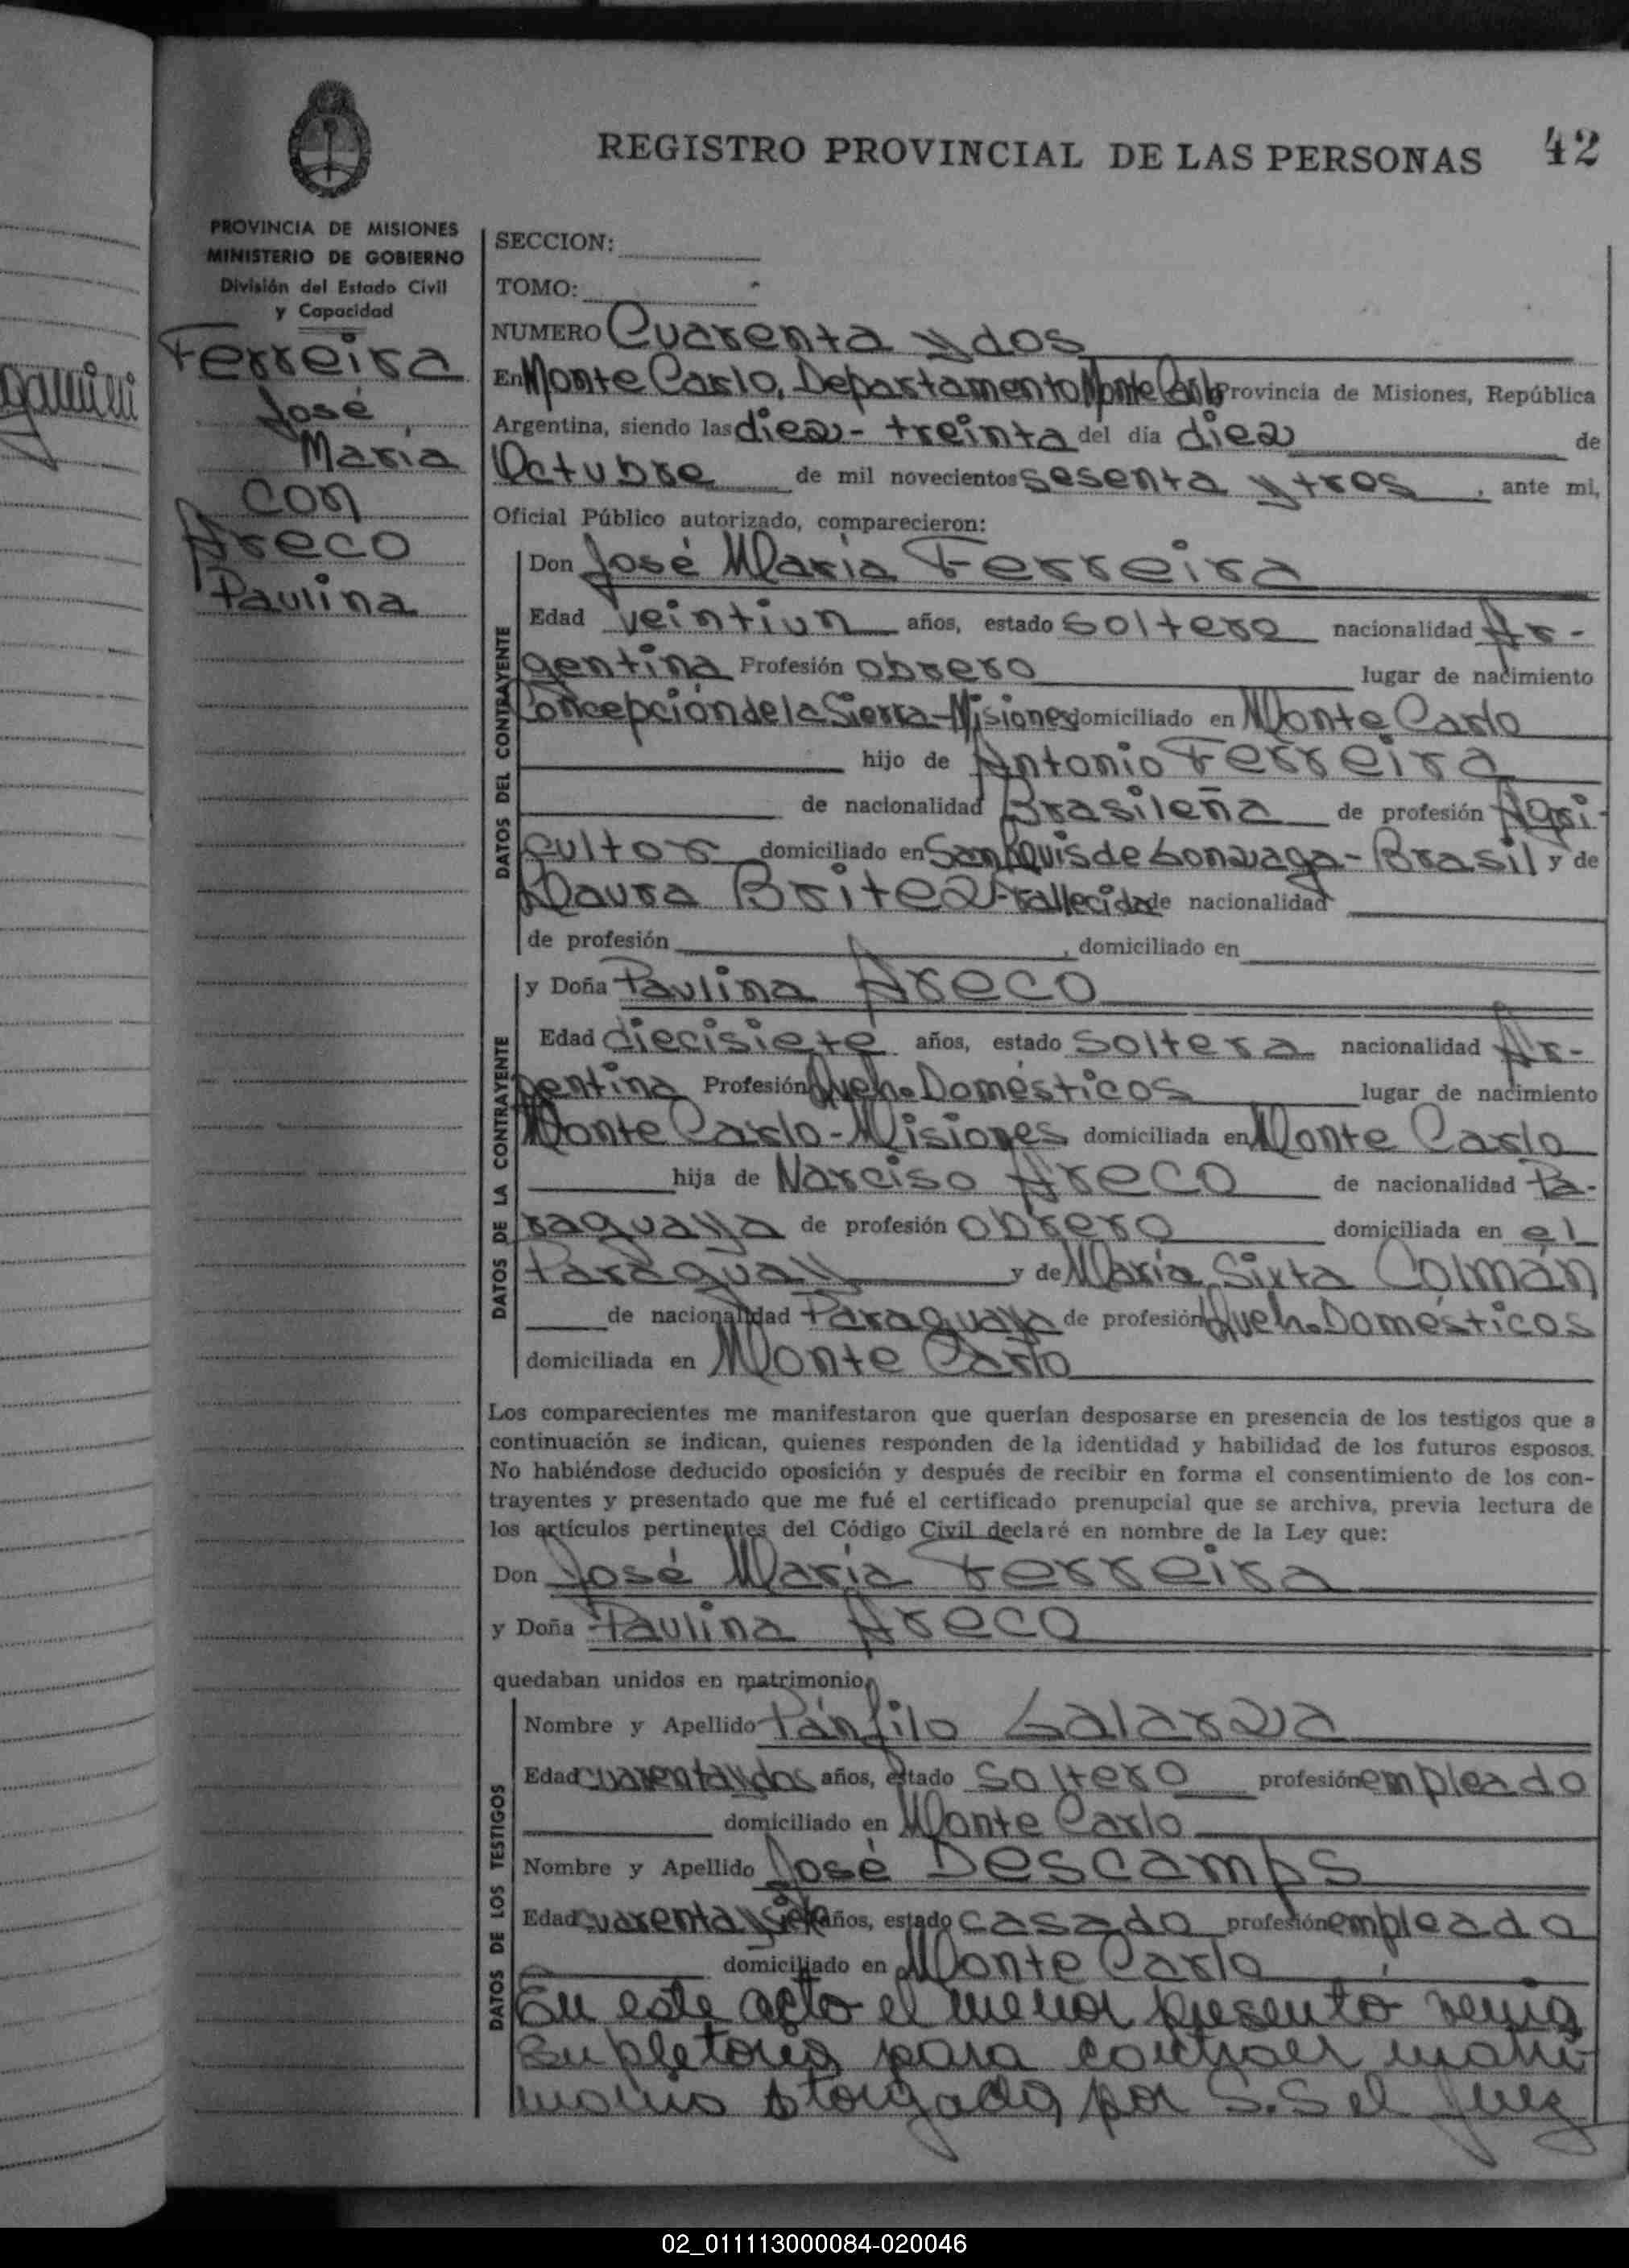 REGISTRO PROVINCIAL DE LAS PERSONAS 42
PROVINCIA DE MISIONES
MINISTERIO DE GOBIERNO
División del Estado Civil
y Capacidad
Ferreira
José
María
con
Areco
Paulina
SECCION:
TOMO:
NUMERO Cuarenta y dos
En Monte Carlo, Departamento Monte Carlo Provincia de Misiones, República
Argentina, siendo las diez - treinta del día diez de
Octubre de mil novecientos sesenta y tres, ante mi,
Oficial Público autorizado, comparecieron:
DATOS DEL CONTRAYENTE
Don José María Ferreira
Edad veintiun años, estado soltero nacionalidad Ar-
gentina Profesión obrero lugar de nacimiento
Concepción de la Sierra - Misiones domiciliado en Monte Carlo
hijo de Antonio Ferreira
de nacionalidad Brasileña de profesión Agri-
cultor domiciliado en San Luis de Gonzaga - Brasil y de
Maura Britez - fallecida de nacionalidad
de profesión , domiciliado en
DATOS DE LA CONTRAYENTE
y Doña Paulina Areco
Edad diecisiete años, estado soltera nacionalidad Ar-
gentina Profesión Queh. Domésticos lugar de nacimiento
Monte Carlo - Misiones domiciliada en Monte Carlo
hija de Narciso Areco de nacionalidad Pa-
raguaya de profesión obrero domiciliada en el
Paraguay y de María Sixta Colmán
de nacionalidad Paraguaya de profesión Queh. Domésticos
domiciliada en Monte Carlo
Los comparecientes me manifestaron que querían desposarse en presencia de los testigos que a
continuación se indican, quienes responden de la identidad y habilidad de los futuros esposos.
No habiéndose deducido oposición y después de recibir en forma el consentimiento de los con-
trayentes y presentado que me fué el certificado prenupcial que se archiva, previa lectura de
los artículos pertinentes del Código Civil declaré en nombre de la Ley que:
Don José María Ferreira
y Doña Paulina Areco
quedaban unidos en matrimonio,
DATOS DE LOS TESTIGOS
Nombre y Apellido Pánfilo Galarza
Edad cuarenta y dos años, estado soltero profesión empleado
domiciliado en Monte Carlo
Nombre y Apellido José Descamps
Edad cuarenta y siete años, estado casado profesión empleado
domiciliado en Monte Carlo
En este acto el menor presentó venia
supletoria para contraer matri-
monio otorgada por S.S el Juez
02_011113000084-020046